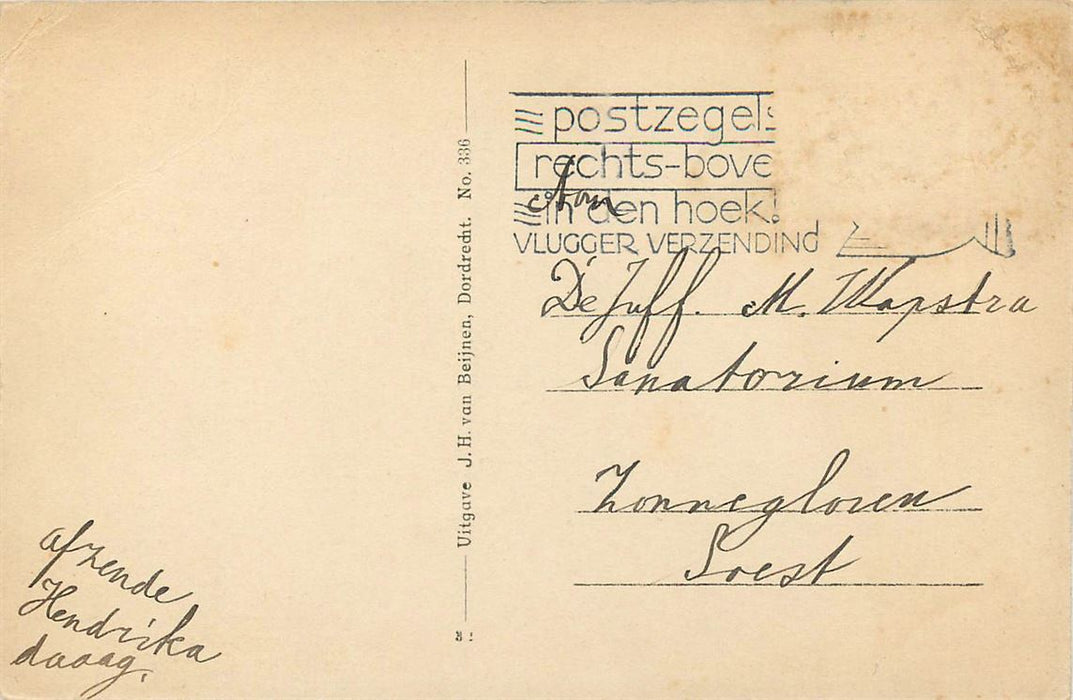 postzegels
rechts-bove
in den hoek!
VLUGGER VERZENDING
Aan
De Juff. M. Wapstra
Sanatorium
Zonnegloren
Soest
Uitgave J. H. van Beijnen, Dordrecht. No. 336
afzende
Hendrika